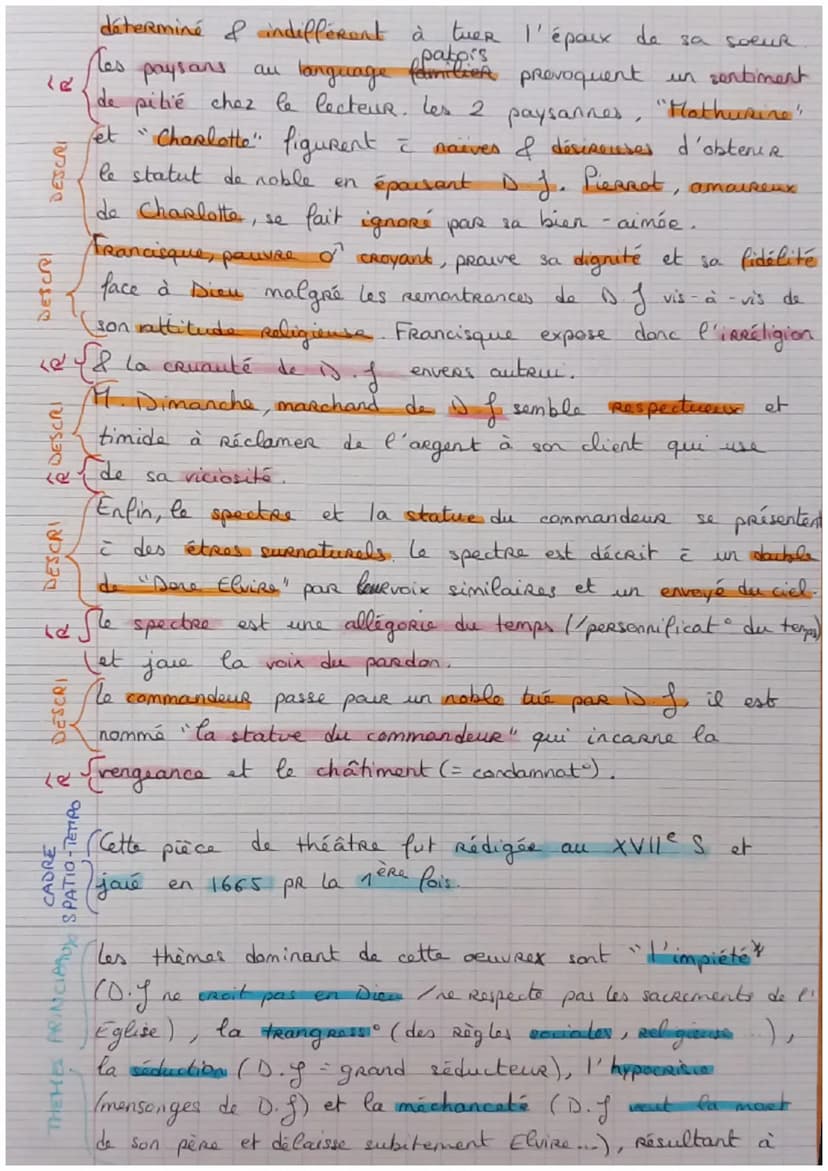 déterminé & indifférent à tuer l'époux de sa soeur
patois
Les paysans au language familier provoquent un sentiment
de pitié chez le lecteur. Les 2 paysannes, "Mathurine"
et "Charlotte" figurent c̄ naïves & désireuses d'obtenir
le statut de noble en épousant D J. Pierrot, amoureux
de Charlotte, se fait ignoré par sa bien-aimée.
Francisque, pauvre ♂ croyant, prouve sa dignité et sa fidélité
face à Dieu malgré les remontrances de D J vis-à-vis de
son attitude religieuse. Francisque expose donc l'irréligion
& la cruauté de D. J envers autrui.
M. Dimanche, marchand de D J semble respectueux et
timide à réclamer de l'argent à son client qui use
de sa viciosité.
Enfin, le spectre et la statue du commandeur se présentent
c̄ des êtres surnaturels. Le spectre est décrit c̄ un double
de "Done Elvire" par leur voix similaires et un envoyé du ciel.
Le spectre est une allégorie du temps (/personnificat° du temps)
et joue la voix du pardon.
Le commandeur passe pour un noble tué par D. J, il est
nommé "la statue du commandeur" qui incarne la
vengeance et le châtiment (= condamnat°).
Cette pièce de théâtre fut rédigée au XVIIe S et
joué en 1665 pr la 1ère fois.
Les thèmes dominant de cette oeuvrex sont "l'impiété"
(D.J ne croit pas en Dieu /ne respecte pas les sacrements de l'
Église), la trangress° (des règles sociales, religieuse...),
la séduction (D.J = grand séducteur), l'hypocrisie
(mensonges de D.J) et la méchanceté (D.J veut la mort
de son père et délaisse subitement Elvire...), résultant à
DESCRI
DESCRI
DESCRI
DESCRI
DESCRI
CADRE
SPATIO-TEMPO
THEMES PRINCIPAUX